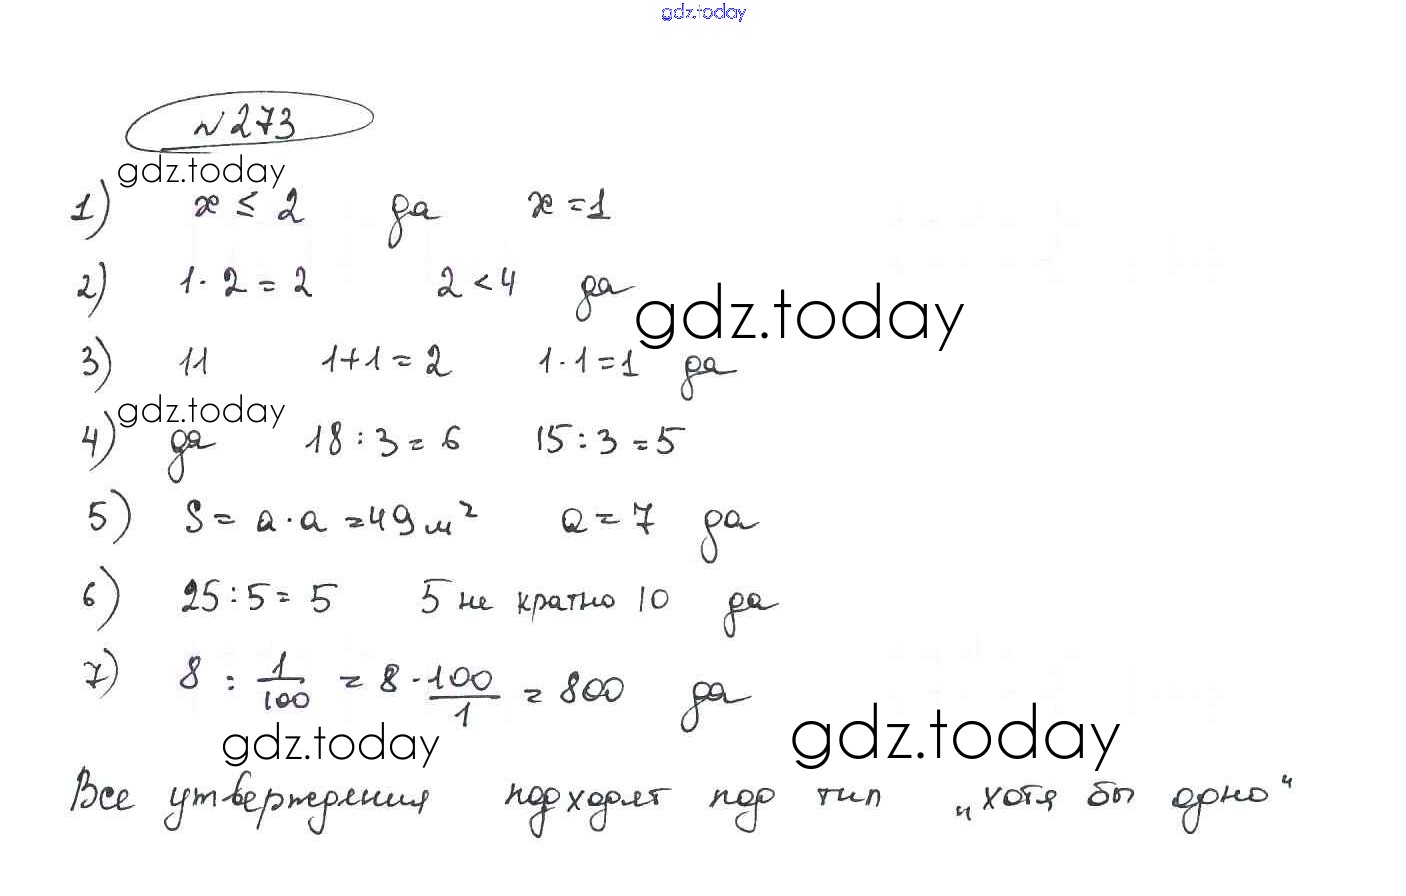 gdz.today
№273
gdz.today
1) x ≤ 2 да x = 1
2) 1 · 2 = 2 2 < 4 да
gdz.today
3) 11 1+1 = 2 1 · 1 = 1 да
gdz.today
4) да 18 : 3 = 6 15 : 3 = 5
5) S = a · a = 49 м² a = 7 да
6) 25 : 5 = 5 5 не кратно 10 да
7) 8 : 1/100 = 8 · 100/1 = 800 да
gdz.today
gdz.today
Все утверждения подходят под тип „хотя бы одно“